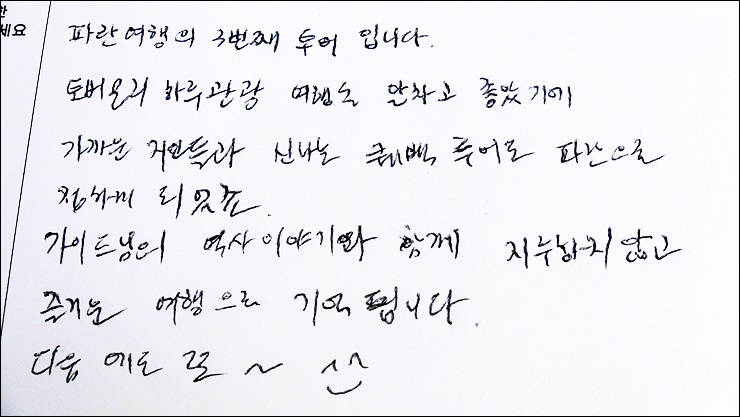 한
세요
파란여행의 3번째 투어 입니다.
하루관광 여행도 알차고 좋았기에
가까운 지인들과 신나는 태백 투어도 파란으로
가이드님의 역사이야기와 함께 지루하지않고
즐거운 여행으로 기억됩니다.
다음에도 ~ ^^